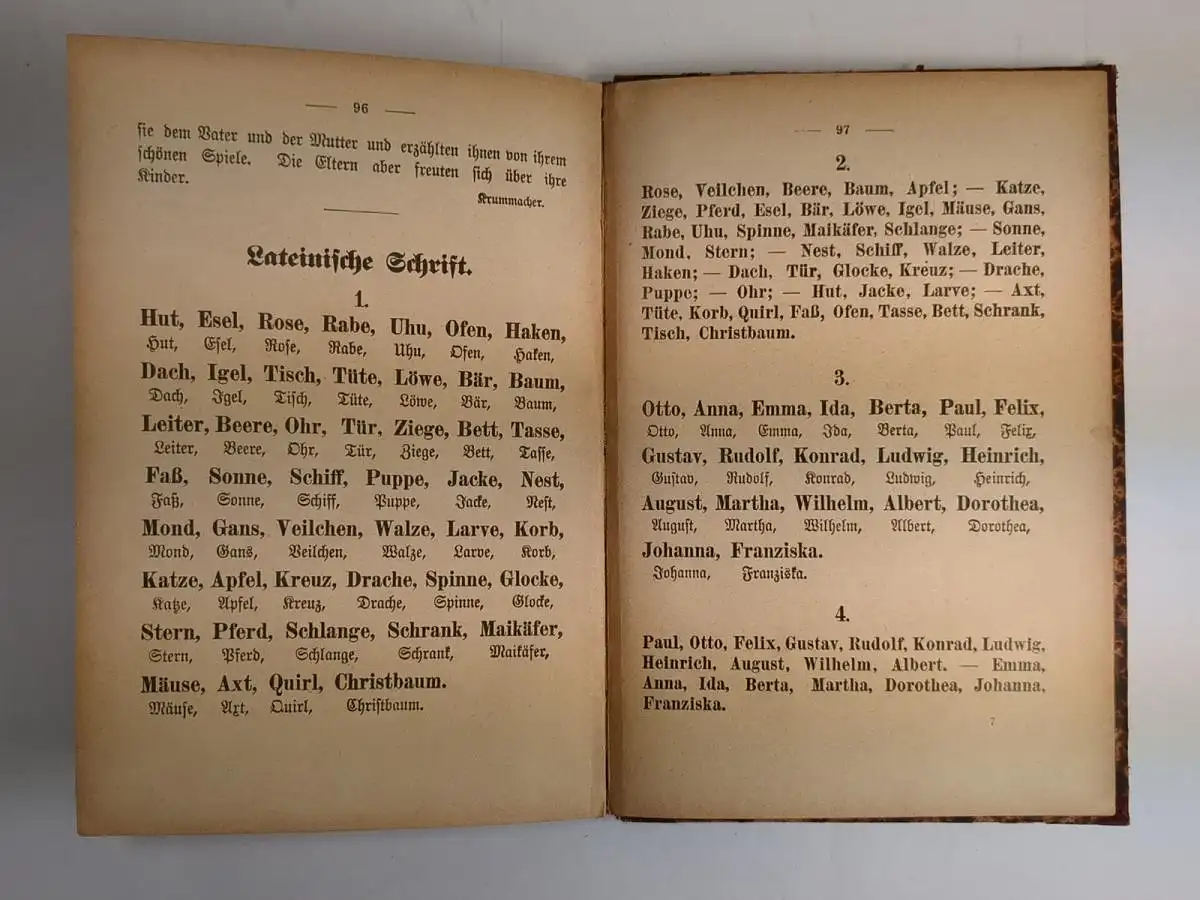 — 96 —
sie dem Vater und der Mutter und erzählten ihnen von ihrem
schönen Spiele. Die Eltern aber freuten sich über ihre
Kinder.
Krummacher.
Lateinische Schrift.
1.
Hut, Esel, Rose, Rabe, Uhu, Ofen, Haken,
Hut, Esel, Rose, Rabe, Uhu, Ofen, Haken,
Dach, Igel, Tisch, Tüte, Löwe, Bär, Baum,
Dach, Igel, Tisch, Tüte, Löwe, Bär, Baum,
Leiter, Beere, Ohr, Tür, Ziege, Bett, Tasse,
Leiter, Beere, Ohr, Tür, Ziege, Bett, Tasse,
Faß, Sonne, Schiff, Puppe, Jacke, Nest,
Faß, Sonne, Schiff, Puppe, Jacke, Nest,
Mond, Gans, Veilchen, Walze, Larve, Korb,
Mond, Gans, Veilchen, Walze, Larve, Korb,
Katze, Apfel, Kreuz, Drache, Spinne, Glocke,
Katze, Apfel, Kreuz, Drache, Spinne, Glocke,
Stern, Pferd, Schlange, Schrank, Maikäfer,
Stern, Pferd, Schlange, Schrank, Maikäfer,
Mäuse, Axt, Quirl, Christbaum.
Mäuse, Axt, Quirl, Christbaum.
— 97 —
2.
Rose, Veilchen, Beere, Baum, Apfel; — Katze,
Ziege, Pferd, Esel, Bär, Löwe, Igel, Mäuse, Gans,
Rabe, Uhu, Spinne, Maikäfer, Schlange; — Sonne,
Mond, Stern; — Nest, Schiff, Walze, Leiter,
Haken; — Dach, Tür, Glocke, Kreuz; — Drache,
Puppe; — Ohr; — Hut, Jacke, Larve; — Axt,
Tüte, Korb, Quirl, Faß, Ofen, Tasse, Bett, Schrank,
Tisch, Christbaum.
3.
Otto, Anna, Emma, Ida, Berta, Paul, Felix,
Otto, Anna, Emma, Ida, Berta, Paul, Felix,
Gustav, Rudolf, Konrad, Ludwig, Heinrich,
Gustav, Rudolf, Konrad, Ludwig, Heinrich,
August, Martha, Wilhelm, Albert, Dorothea,
August, Martha, Wilhelm, Albert, Dorothea,
Johanna, Franziska.
Johanna, Franziska.
4.
Paul, Otto, Felix, Gustav, Rudolf, Konrad, Ludwig,
Heinrich, August, Wilhelm, Albert. — Emma,
Anna, Ida, Berta, Martha, Dorothea, Johanna,
Franziska.
7